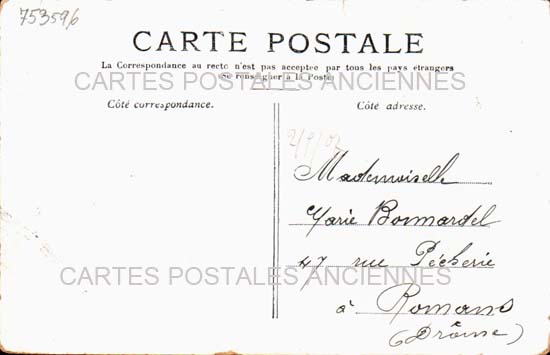 753596
CARTE POSTALE
La Correspondance au recto n'est pas acceptee par tous les pays etrangers
(Se renseigner à la Poste)
CARTES POSTALES ANCIENNES
Côté correspondance.
Côté adresse.
Mademoiselle
Marie Bonnardel
47 rue Pêcherie
CARTES POSTALES ANCIENNES
à Romans
(Drôme)